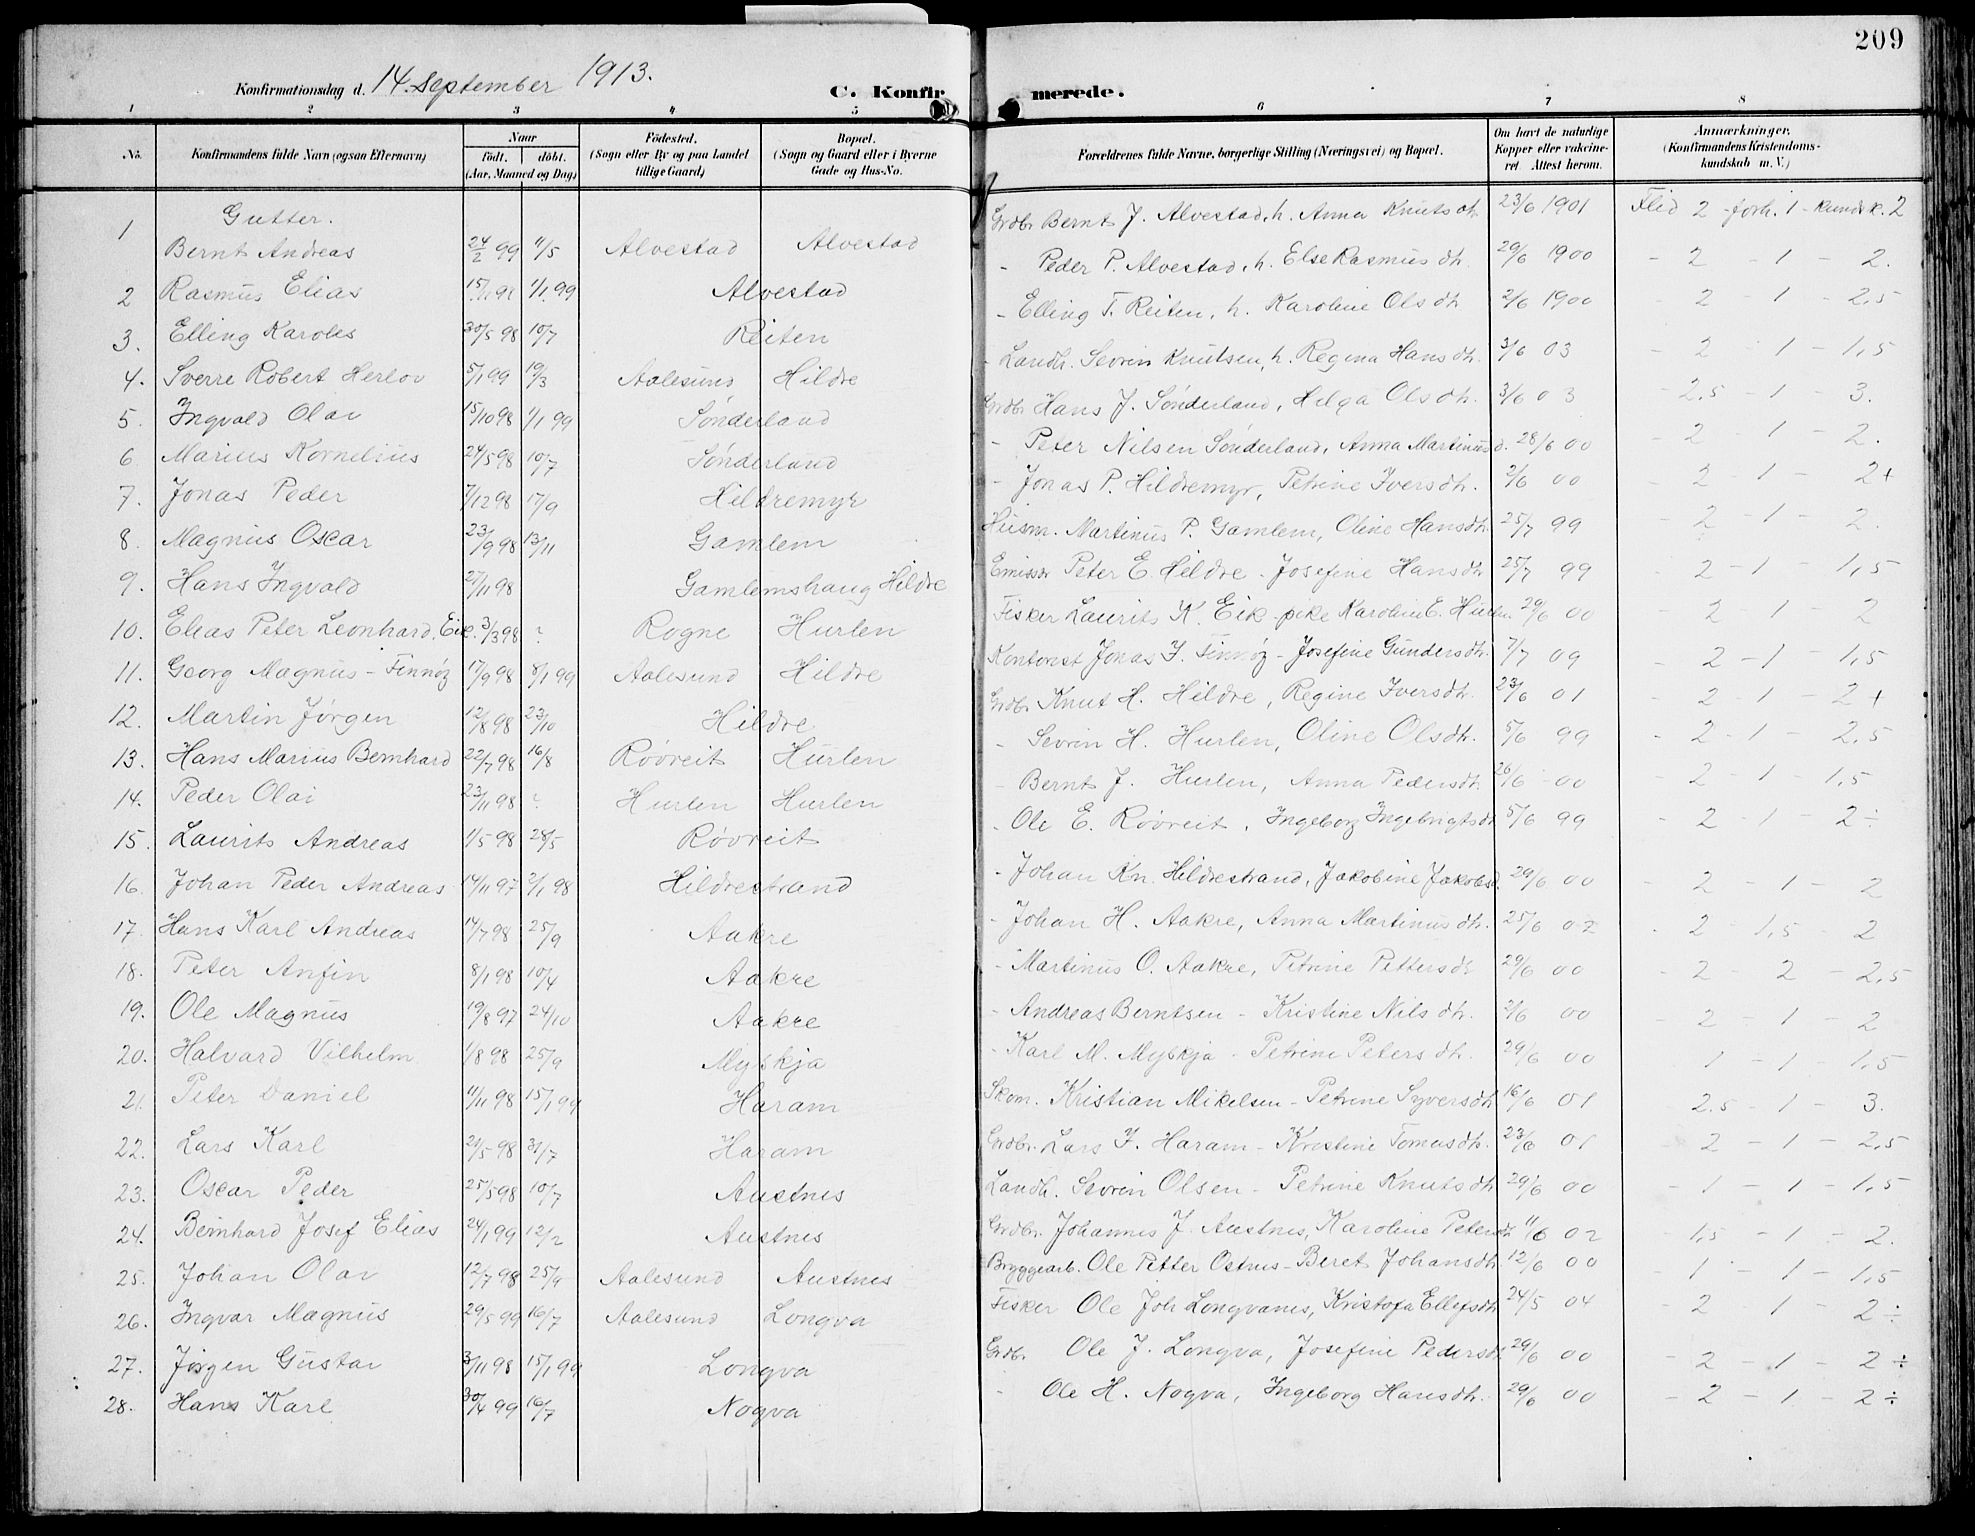 209
Konfirmationsdag d. 14. September 1913.
C. Konfirmerede.
1 2 3 4 5 6 7 8
No. Konfirmandens fulde Navn (ogsaa Efternavn) Naar født. døbt. (Aar, Maaned og Dag) Fødested. (Sogn eller By og paa Landet tillige Gaard) Bopæl. (Sogn og Gaard eller i Byerne Gade og Hus-No. Forældrenes fulde Navne, borgerlige Stilling (Næringsvei) og Bopæl. Om havt de naturlige Kopper eller vakcineret. Attest herom. Anmærkninger, (Konfirmandens Kristendomskundskab m. V.)
Gutter.
1 Bernt Andreas 24/2 99 4/5 Alvestad Alvestad Grdbr Bernt J. Alvestad, h. Anna Knutsdtr 23/6 1901 Flid 2 - forh. 1 - kundsk. 2
2 Rasmus Elias 1/1 99 Alvestad - Peder P. Alvestad, h. Else Rasmusdtr. 29/6 1900 - 2 - 1 - 2.
3. Elling Karoles 30/5 98 10/7 Reiten - Elling T. Reiten, h. Karoline Olsdtr 2/6 1900 - 2 - 1 - 2,5
4. Sverre Robert Herlov 5/1 99 19/3 Aalesund Hildre - Landh. Sevrin Knutsen, h. Regina Hansdtr. 3/6 03 - 2 - 1 - 1,5
5. Ingvald Olav 15/10 98 1/1 99 Sønderland Grdbr Hans J. Sønderland, Helga Olsdtr. 3/6 03 - 2,5 - 1 - 3.
6 Marius Kornelius 24/5 98 10/7 Sønderland - Peter Nilsen Sønderland, Anna Martinusd. 28/6 00 - 2 1 - 2.
7. Jonas Peder 7/12 98 17/9 Hildremyr - Jonas P. Hildremyr, Petrine Iversdtr. 2/6 00 - 2 1 - 2+
8. Magnus Oscar 23/9 98 13/11 Gamlem Husm. Martinus P. Gamlem, Oline Hansdtr. 25/7 99 - 2 - 1 - 2.
9. Hans Ingvald 27/11 98 Gamlemshaug Hildre Emissær Peter E. Hildre - Josefine Hansdtr 25/7 99 - 2 - 1 - 1,5
10. Elias Peter Leonhard, Eik. 3/3 98 ? Rogne Hurlen Fisker Laurits K. Eik - pike Karoline E. Hurlen 29/6 00 - 2 1 2
11. Georg Magnus - Finnøy 17/9 98 8/1 99 Aalesund Hildre Kontorist Jonas J. Finnøy - Josefine Gundersdtr. 7/7 09 - 2 - 1 - 1,5
12. Martin Jørgen 12/8 98 23/10 Hildre Grdbr Knut H. Hildre, Regine Iversdtr. 23/6 01 - 2 1 - 2+
13. Hans Marius Bernhard 22/7 98 16/8 Røvreit Hurlen - Sevrin H. Hurlen, Oline Olsdtr. 5/6 99 - 2 - 1 - 2,5
14. Peder Olai 23/11 98 ? Hurlen Hurlen - Bernt J. Hurlen, Anna Pedersdtr. 26/6 00 - 2 1 - 1,5
15. Laurits Andreas 1/5 98 28/5 Røvreit - Ole E. Røvreit, Ingeborg Ingebrigtsdtr 5/6 99 - 2 - 1 - 2÷
16. Johan Peder Andreas 14/11 97 2/1 98 Hildrestrand - Johan Kn. Hildrestrand, Jakobine Jakobsd. 29/6 00 - 2 - 1 - 2
17. Hans Karl Andreas 14/7 98 25/9 Aakre - Johan H. Aakre, Anna Martinusdtr. 25/6 02 - 2 - 1,5 - 2
18. Peter Anfin 8/1 98 10/4 Aakre - Martinus O. Aakre, Petrine Pettersdtr 29/6 00 - 2 - 2 - 2,5
19. Ole Magnus 19/8 97 24/10 Aakre - Andreas Berntsen - Kristine Nilsdtr. 2/6 00 - 2 - 1 - 2
20. Halvard Vilhelm 1/8 98 25/9 Myskja - Karl M. Myskja - Petrine Petersdtr. 29/6 00 1 - 1 - 1,5
21. Peter Daniel 11/11 98 15/1 99 Haram Skom. Kristian Mikelsen - Petrine Syversdtr 16/6 01 2,5 - 1 - 3.
22. Lars Karl 21/5 98 31/7 Haram Grdbr. Lars J. Haram - Kristine Tomasdtr. 23/6 01 - 2 - 1 - 2,5
23. Oscar Peder 25/5 98 10/7 Austnes Landh. Sevrin Olsen - Petrine Knutsdtr 29/6 00 - 1 - 1 - 1,5
24. Bernhard Josef Elias 24/1 99 12/2 Austnes Grdbr. Johannes J. Austnes, Karoline Petersdtr 11/6 02 - 1,5 - 1 - 2.
25. Johan Olav 12/7 98 25/9 Aalesund Austnes Bryggearb. Ole Petter Ostnes - Beret Johansdtr 12/6 00 - 1 - 1 - 1,5
26. Ingvar Magnus 29/5 99 16/7 Aalesund Longva Fisker Ole Joh Longvanes, Kristofa Ellefsdtr 24/5 04 - 2 1 - 2÷
27. Jørgen Gustav 3/11 98 15/1 99 Longva Grdbr Ole J. Longva, Josefine Pedersdtr 29/6 00 - 2 - 1 - 2÷
28. Hans Karl 30/4 99 16/7 Nogva - Ole H. Nogva, Ingeborg Hansdtr. 29/6 00 - 2 - 1 - 2÷